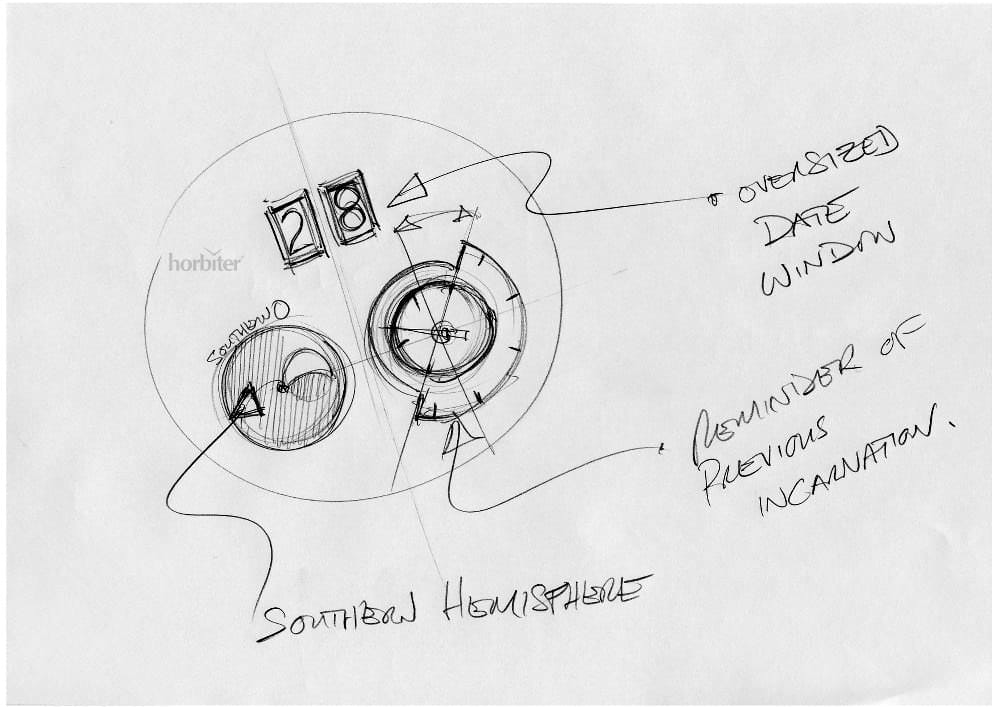 28
horbiter
SOUTHERN
OVERSIZED
DATE
WINDOW
REMINDER OF
PREVIOUS
INCARNATION.
SOUTHERN HEMISPHERE